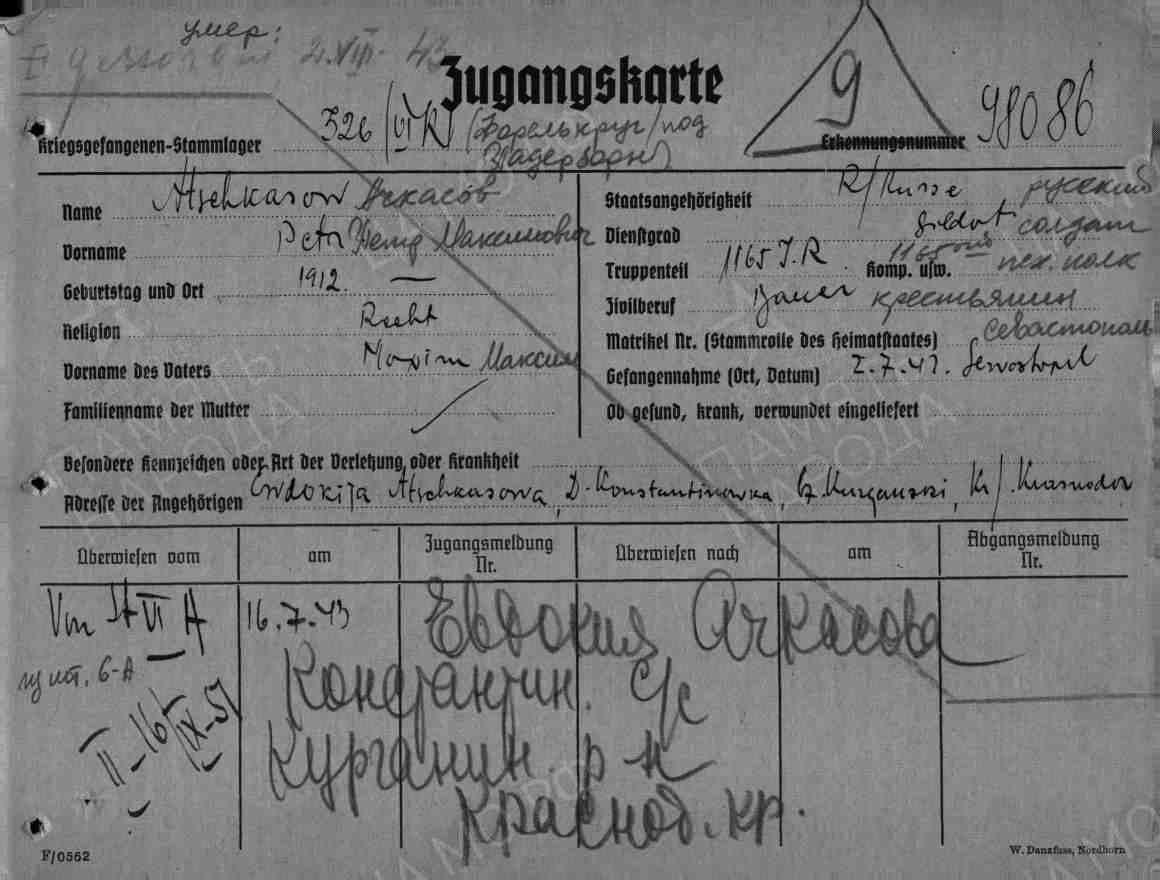 умер:
2.VIII. 43
Zugangskarte
9
Kriegsgefangenen-Stammlager 326/VI K (Форелькруг/под
Падерборн)
Erkennungsnummer 98086
Name Atschkasow Ачкасов
Vorname Petr Петр Максимович
Geburtstag und Ort 1912. —
Religion
Vorname des Vaters Maxim Максим
Familienname der Mutter
Staatsangehörigkeit R/Russe русский
Dienstgrad Soldat солдат
Truppenteil 1165 J.R Komp. usw. 1165 пех. полк
Zivilberuf Bauer крестьянин
Matrikel Nr. (Stammrolle des Heimatstaates) Севастополь
Gefangennahme (Ort, Datum) 2.7.42. Sewostopol
Ob gesund, krank, verwundet eingeliefert
Besondere Kennzeichen oder Art der Verletzung oder Krankheit
Adresse der Angehörigen Ewdokija Atschkasowa, D. Konstantinowka, Kurganski, Kr/. Krasnodor
Überwiesen vom am Zugangsmeldung Nr. Überwiesen nach am Abgangsmeldung Nr.
Von St VI A 16.7.43 Евдокия Ачкасова
из шт. 6-А
Константин. с/с
II-16/IX-51
Курганин. р-н
Краснод. кр.
F/0562
W. Danzfuss, Nordhorn
ПАМЯТЬ НАРОДА
ПАМЯТЬ НАРОДА